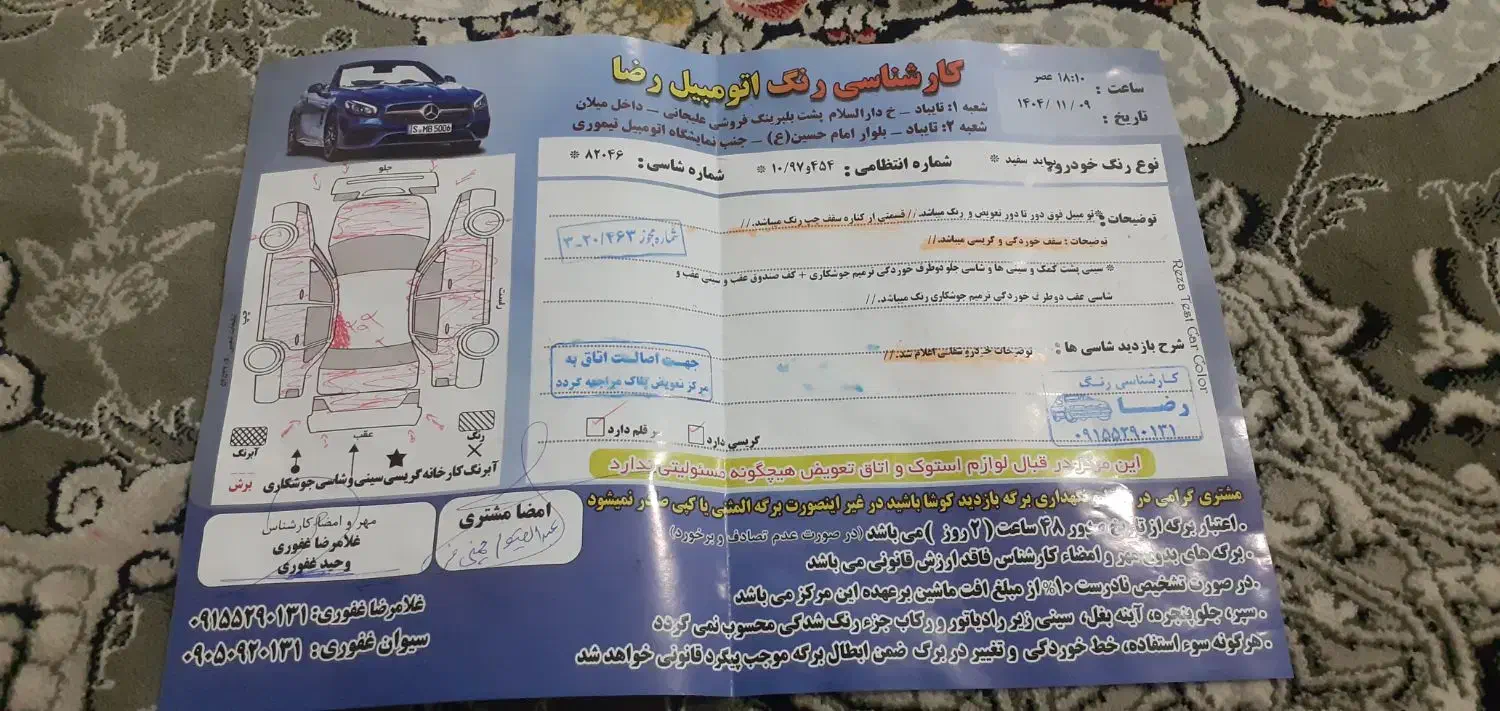 کارشناسی رنگ اتومبیل رضا
ساعت : ۱۸:۱۰ عصر
تاریخ : ۱۴۰۴/۱۱/۰۹
شعبه ۱: تایباد _ خ دارالسلام پشت بلبرینگ فروشی علیجانی _ داخل میلان
شعبه ۲: تایباد _ بلوار امام حسین(ع) _ جنب نمایشگاه اتومبیل تیموری
S MB 5006
نوع رنگ خودرو سفید * شماره انتظامی : ۱۰/۹۷و۴۵۴ * شماره شاسی : ۸۲۰۴۶ *
توضیحات : فوق دور تا دور تعویض و رنگ میباشد. // قسمتی از کناره سقف چپ رنگ میباشد. //
شماره مجوز ۲۰/۴۶۳_۳
توضیحات : سقف خوردگی و گریسی میباشد. //
* سینی پشت کمک و سینی ها و شاسی جلو دوطرف خوردگی ترمیم جوشکاری + کف صندوق عقب و سینی عقب و
شاسی عقب دوطرف خوردگی ترمیم جوشکاری رنگ میباشد. //
Reza Test Car Color
شرح بازدید شاسی ها : توضیحات خودرو شفاهی اعلام شد. //
جهت اصالت اتاق به
مرکز تعویض پلاک مراجعه گردد
کارشناسی رنگ
رضا
۰۹۱۵۵۲۹۰۱۳۱
گریسی دارد
قلم دارد
جلو
راست
چپ
عقب
رنگ
آبرنگ
آبرنگ کارخانه گریسی سینی و شاسی جوشکاری
برش
این مرکز در قبال لوازم استوک و اتاق تعویض هیچگونه مسئولیتی ندارد
مشتری گرامی در نگهداری برگه بازدید کوشا باشید در غیر اینصورت برگه المثنی یا کپی صادر نمیشود
۰ اعتبار برگه از تاریخ صدور ۴۸ ساعت (۲ روز) می باشد (در صورت عدم تصادف و برخورد)
۰ برگه های بدون مهر و امضاء کارشناس فاقد ارزش قانونی می باشد
۰ در صورت تشخیص نادرست ۱۰% از مبلغ افت ماشین برعهده این مرکز می باشد
۰ سپر، جلو پنجره، آینه بغل، سینی زیر رادیاتور و رکاب جزء رنگ شدگی محسوب نمی گردد
۰ هرگونه سوء استفاده، خط خوردگی و تغییر در برگ ضمن ابطال برگه موجب پیگرد قانونی خواهد شد
امضا مشتری
مهر و امضا کارشناس
غلامرضا غفوری
وحید غفوری
غلامرضا غفوری: ۰۹۱۵۵۲۹۰۱۳۱
سیوان غفوری: ۰۹۰۵۰۹۲۰۱۳۱